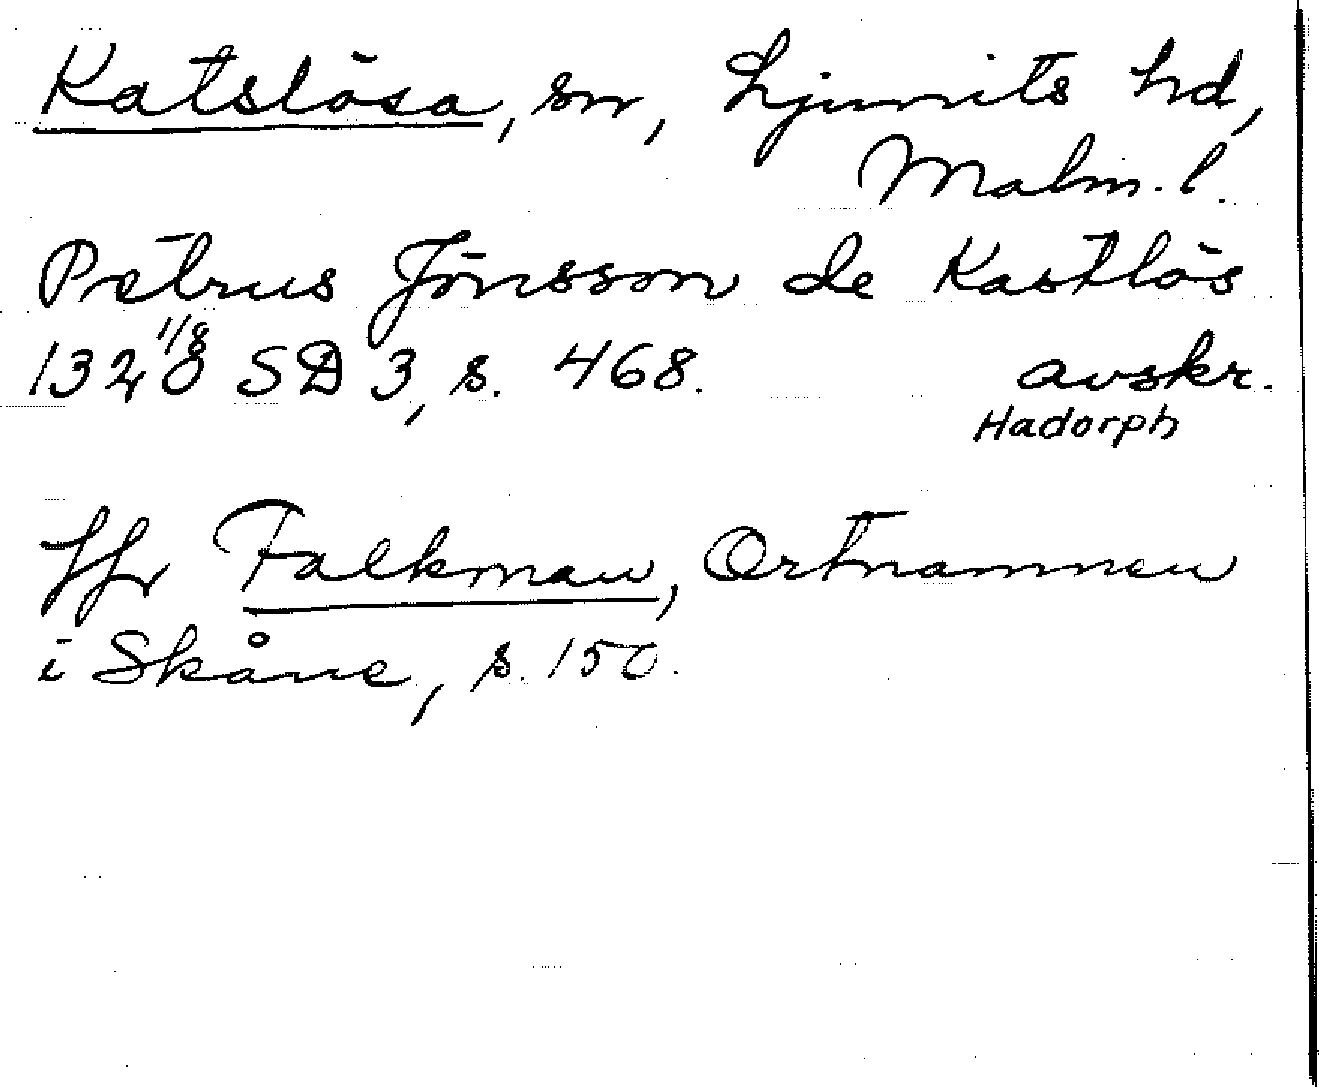 Katslösa, sn, Ljunits hd,
Malm. l.
Petrus Jönsson de Kastlös
1320 1/8 SD 3, s. 468. avskr.
Hadorph
Jfr Falkman, Ortnamnen
i Skåne, s. 150.